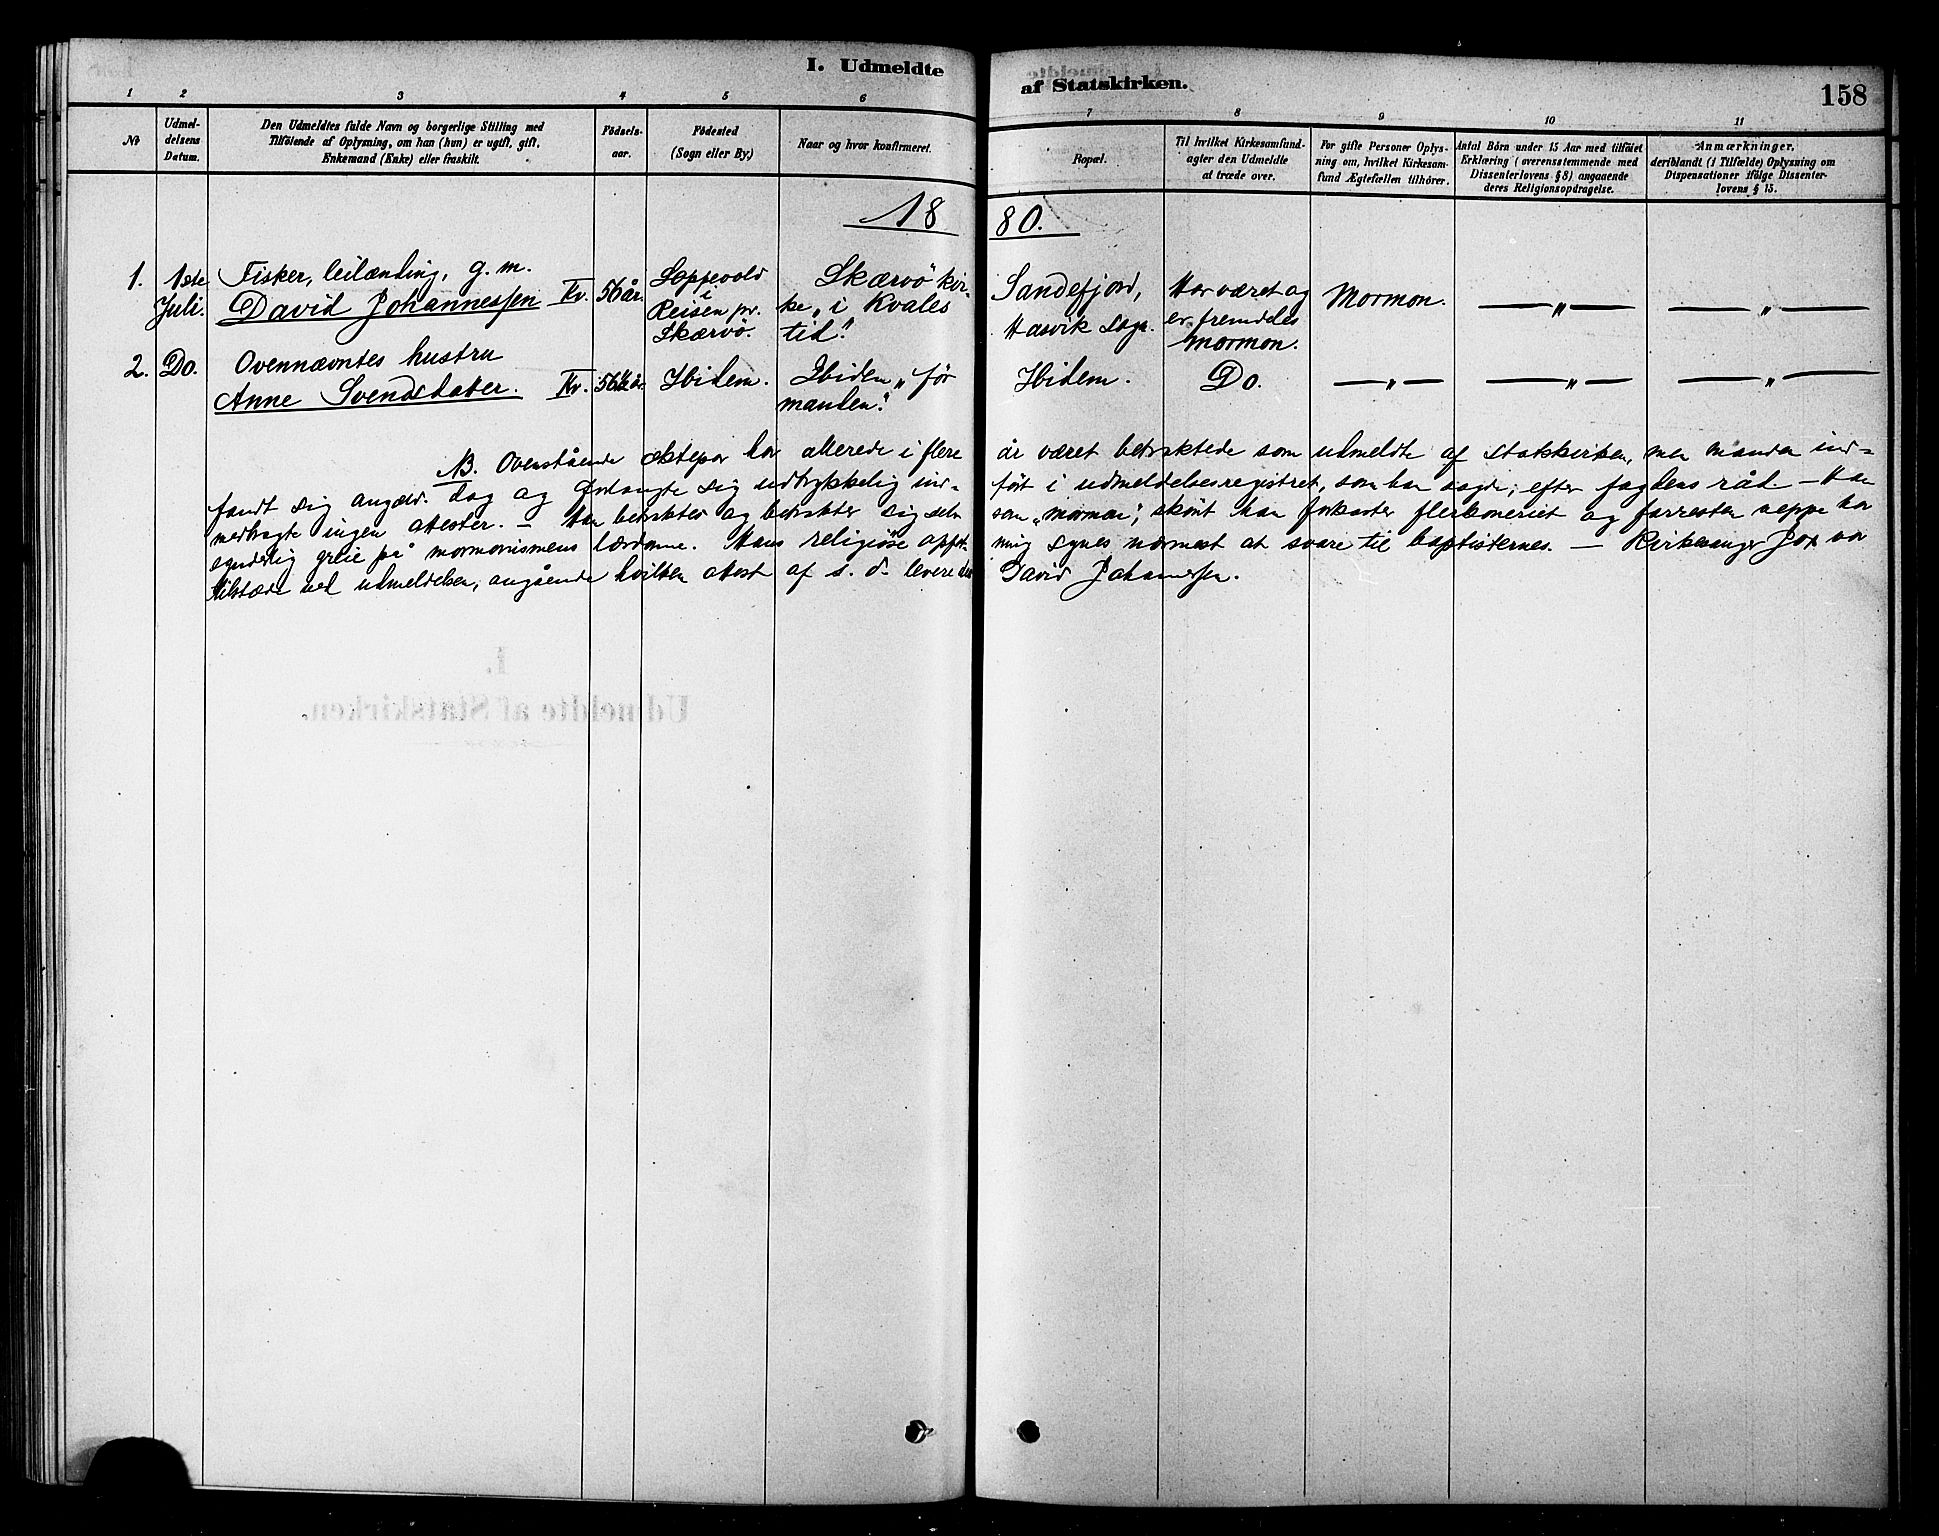 I. Udmeldte
af Statskirken.
158
1 2 3 4 5 6
7 8 9 10 11
No
Udmel-
delsens
Datum.
Den Udmeldtes fulde Navn og borgerlige Stilling med
Tilföiende af Oplysning, om han (hun) er ugift, gift,
Enkemand (Enke) eller fraskilt.
Födsels-
aar.
Födested
(Sogn eller By.)
Naar og hvor konfirmeret.
Bopæl.
Til hvilket Kirkesamfund-
agter den Udmeldte
at træde over.
For gifte Personer Oplys-
ning om, hvilket Kirkesam-
fund Ægtefællen tilhörer.
Antal Börn under 15 Aar med tilföiet
Erklæring (overensstemmende med
Dissenterlovens § 8) angaaende
deres Religionsopdragelse.
Anmærkninger,
deriblandt (i Tilfælde) Oplysning om
Dispensationer ifölge Dissenter-
lovens § 15.
18
80.
1.
1ste
Juli.
Fisker, leilænding, g. m.
David Johannessen
Kv.
56 år.
i
Reisen pr.
Skærvö.
Skærvö kir-
ke „i Kvales
tid".
Sandefjord,
Hasvik sogn.
Har været og
er fremdeles
mormon.
Mormon.
— „ —
— „ —
2.
Do.
Ovennævntes hustru
Anne Svendsdatter.
Kv.
56½ år
Ibidem.
Ibidem „för
manden".
Ibidem.
Do.
— „ —
— „ —
— „ —
NB. Ovenstående ektepar har allerede i flere
år været betraktede som udmeldte af statskirken, men manden ind-
fandt sig angæld. dag og forlangte sig udtrykkelig ind-
fört i udmeldelsesregistret, som han sagde, efter fogdens råd – Han
medbragte ingen attester. – Han betrakter og betrakter sig selv
som „mormon", skönt han forkaster flerkoneriet og forresten neppe har
synderlig greie på mormonismens lærdomme. Hans religiöse opfat-
ning synes nærmest at svare til baptisternes. – Kirkesanger var
tilstæde ved udmeldelsen, angående hvilken attest af s. d. leveredes
David Johannessen.
I.
Udmeldte af Statskirken.